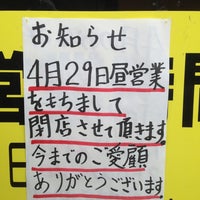 お知らせ
4月29日昼営業
をもちまして
閉店させて頂きます
今までのご愛顧
ありがとうございます
営
間
日